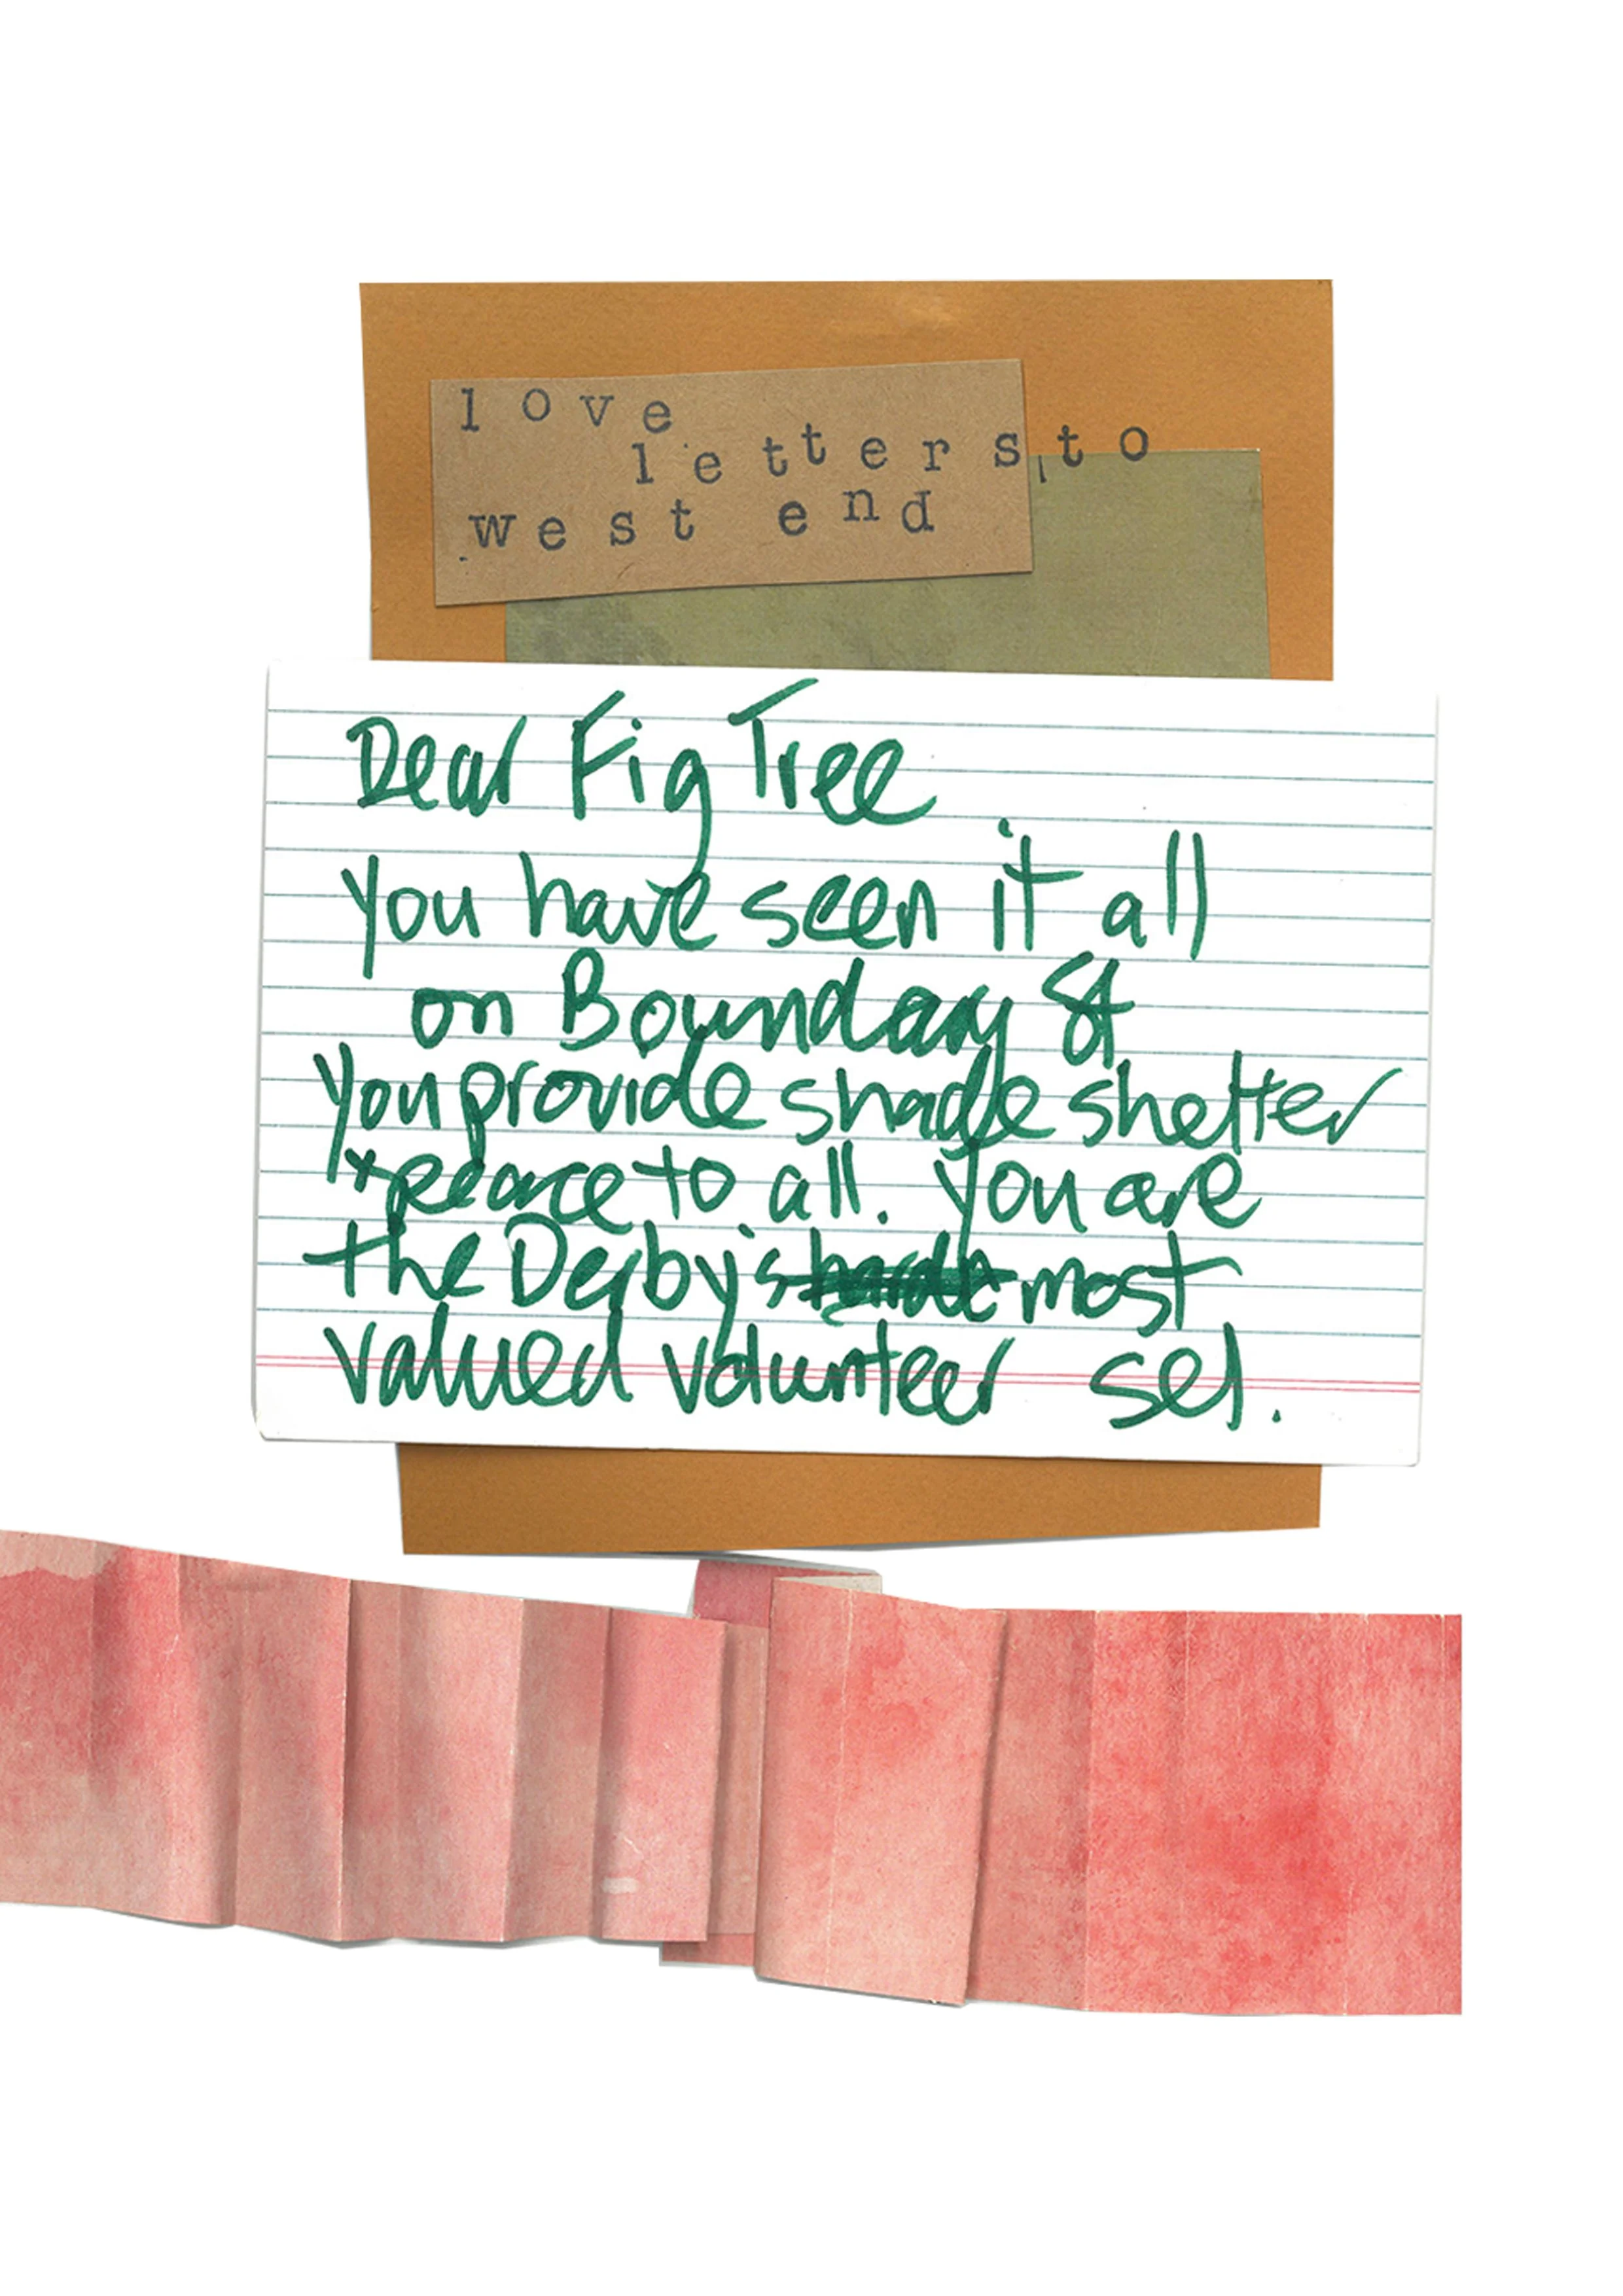 love
letters to
west end
Dear Fig Tree
You have seen it all
on Boundary St
You provide shade shelter
+ peace to all. You are
the Derby's most
valued volunteer sel.